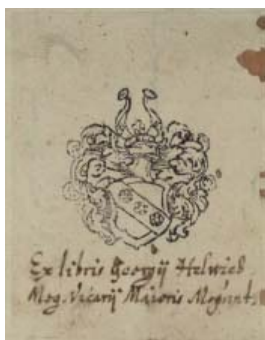 Ex libris Georgij Helwich
Mog. Vicarij Maioris Mogunt.